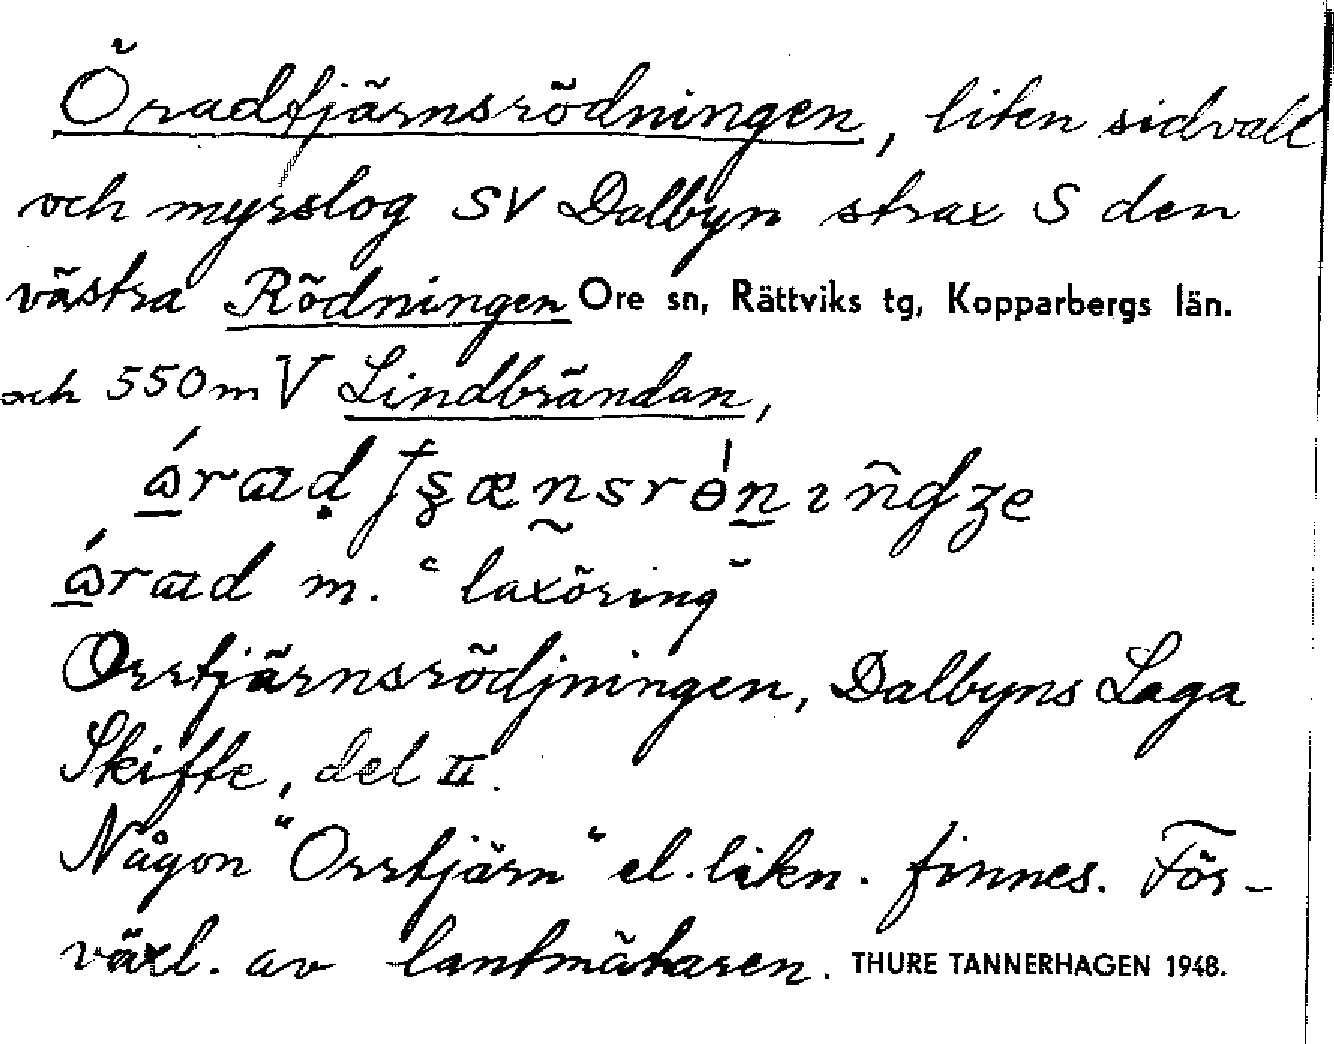 Öradtjärnsrödningen, liten sidvall
och myrslog SV Dalbyn strax S den
västra Rödningen Ore sn, Rättviks tg, Kopparbergs län.
och 550m V Lindbrändan,
m. "laxöring"
Orrtjärnsrödjningen, Dalbyns Laga
Skifte, del II.
Någon "Orrtjärn" el. likn. finnes. För-
växl. av lantmätaren. THURE TANNERHAGEN 1948.